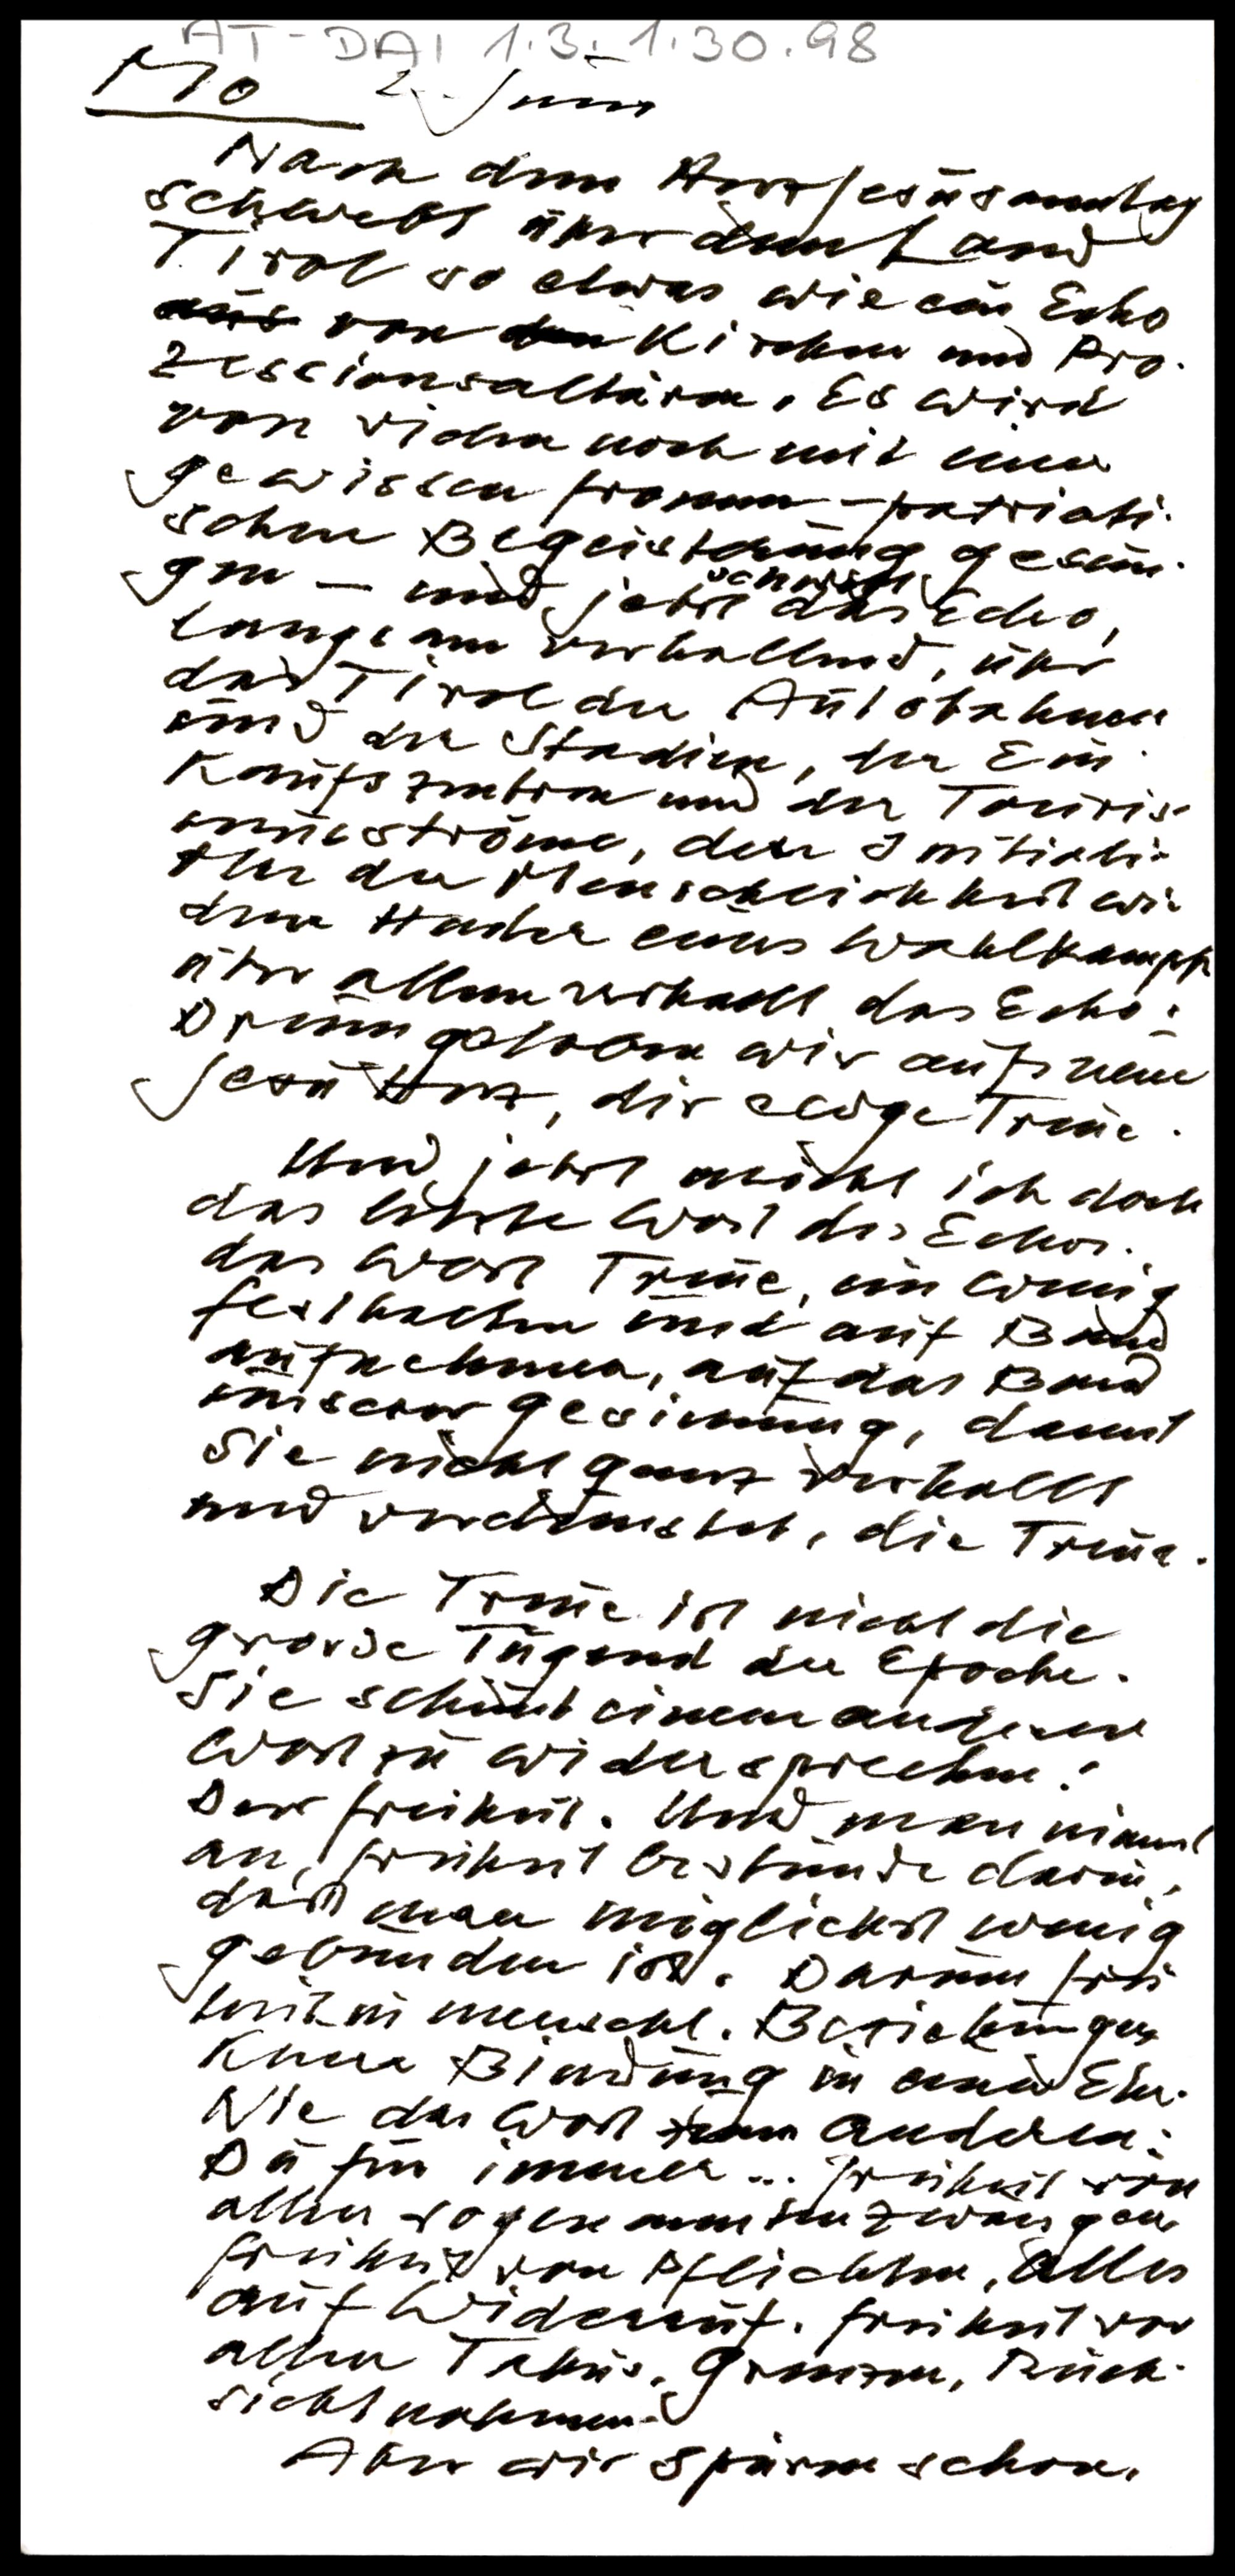 AT-DAI 1.3.1.30.98
Mo 2. Juni
Nach dem Herz Jesusonntag
schwebt über dem Land
Tirol so etwas wie ein Echo
aus von den Kirchen und Pro-
zessionsaltären. Es wird
von vielen noch mit einer
gewissen fromm-patrioti-
schen Begeisterung gesun-
gen - und jetzt schwebt das Echo,
langsam verhallend, über
das Tirol der Autobahnen
und der Stadien, der Ein-
kaufszentren und der Touris-
musströme, der
der Menschlichkeit wie
dem Hader eines Wahlkampfs
über allem verhallt das Echo:
Drum geloben wir aufs neue
Jesu Herz, dir ewige Treue.
Und jetzt möcht ich doch
das letzte Wort des Echos.
das Wort Treue, ein wenig
festhalten und auf Band
aufnehmen, auf das Band
unserer Gesinnung, damit
Sie nicht ganz verhallt
und verdunstet, die Treue.
Die Treue ist nicht die
grosse Tugend der Epoche.
Sie scheint einem anderen
Wort zu widersprechen:
Der Freiheit. Und man nimmt
an, Freiheit bestünde darin,
daß man möglichst wenig
gebunden ist. Darum Frei
heit in menschl. Beziehungen
Keine Bindung in einer Ehe.
Nie das Wort zum anderen:
Du für immer... Freiheit von
allen sogenannten Zwängen
Freiheit von Pflichten, Alles
auf Widerruf. Freiheit von
allen Tabus, Grenzen, Rück-
sichtnahmen.
Aber wir spüren schon,